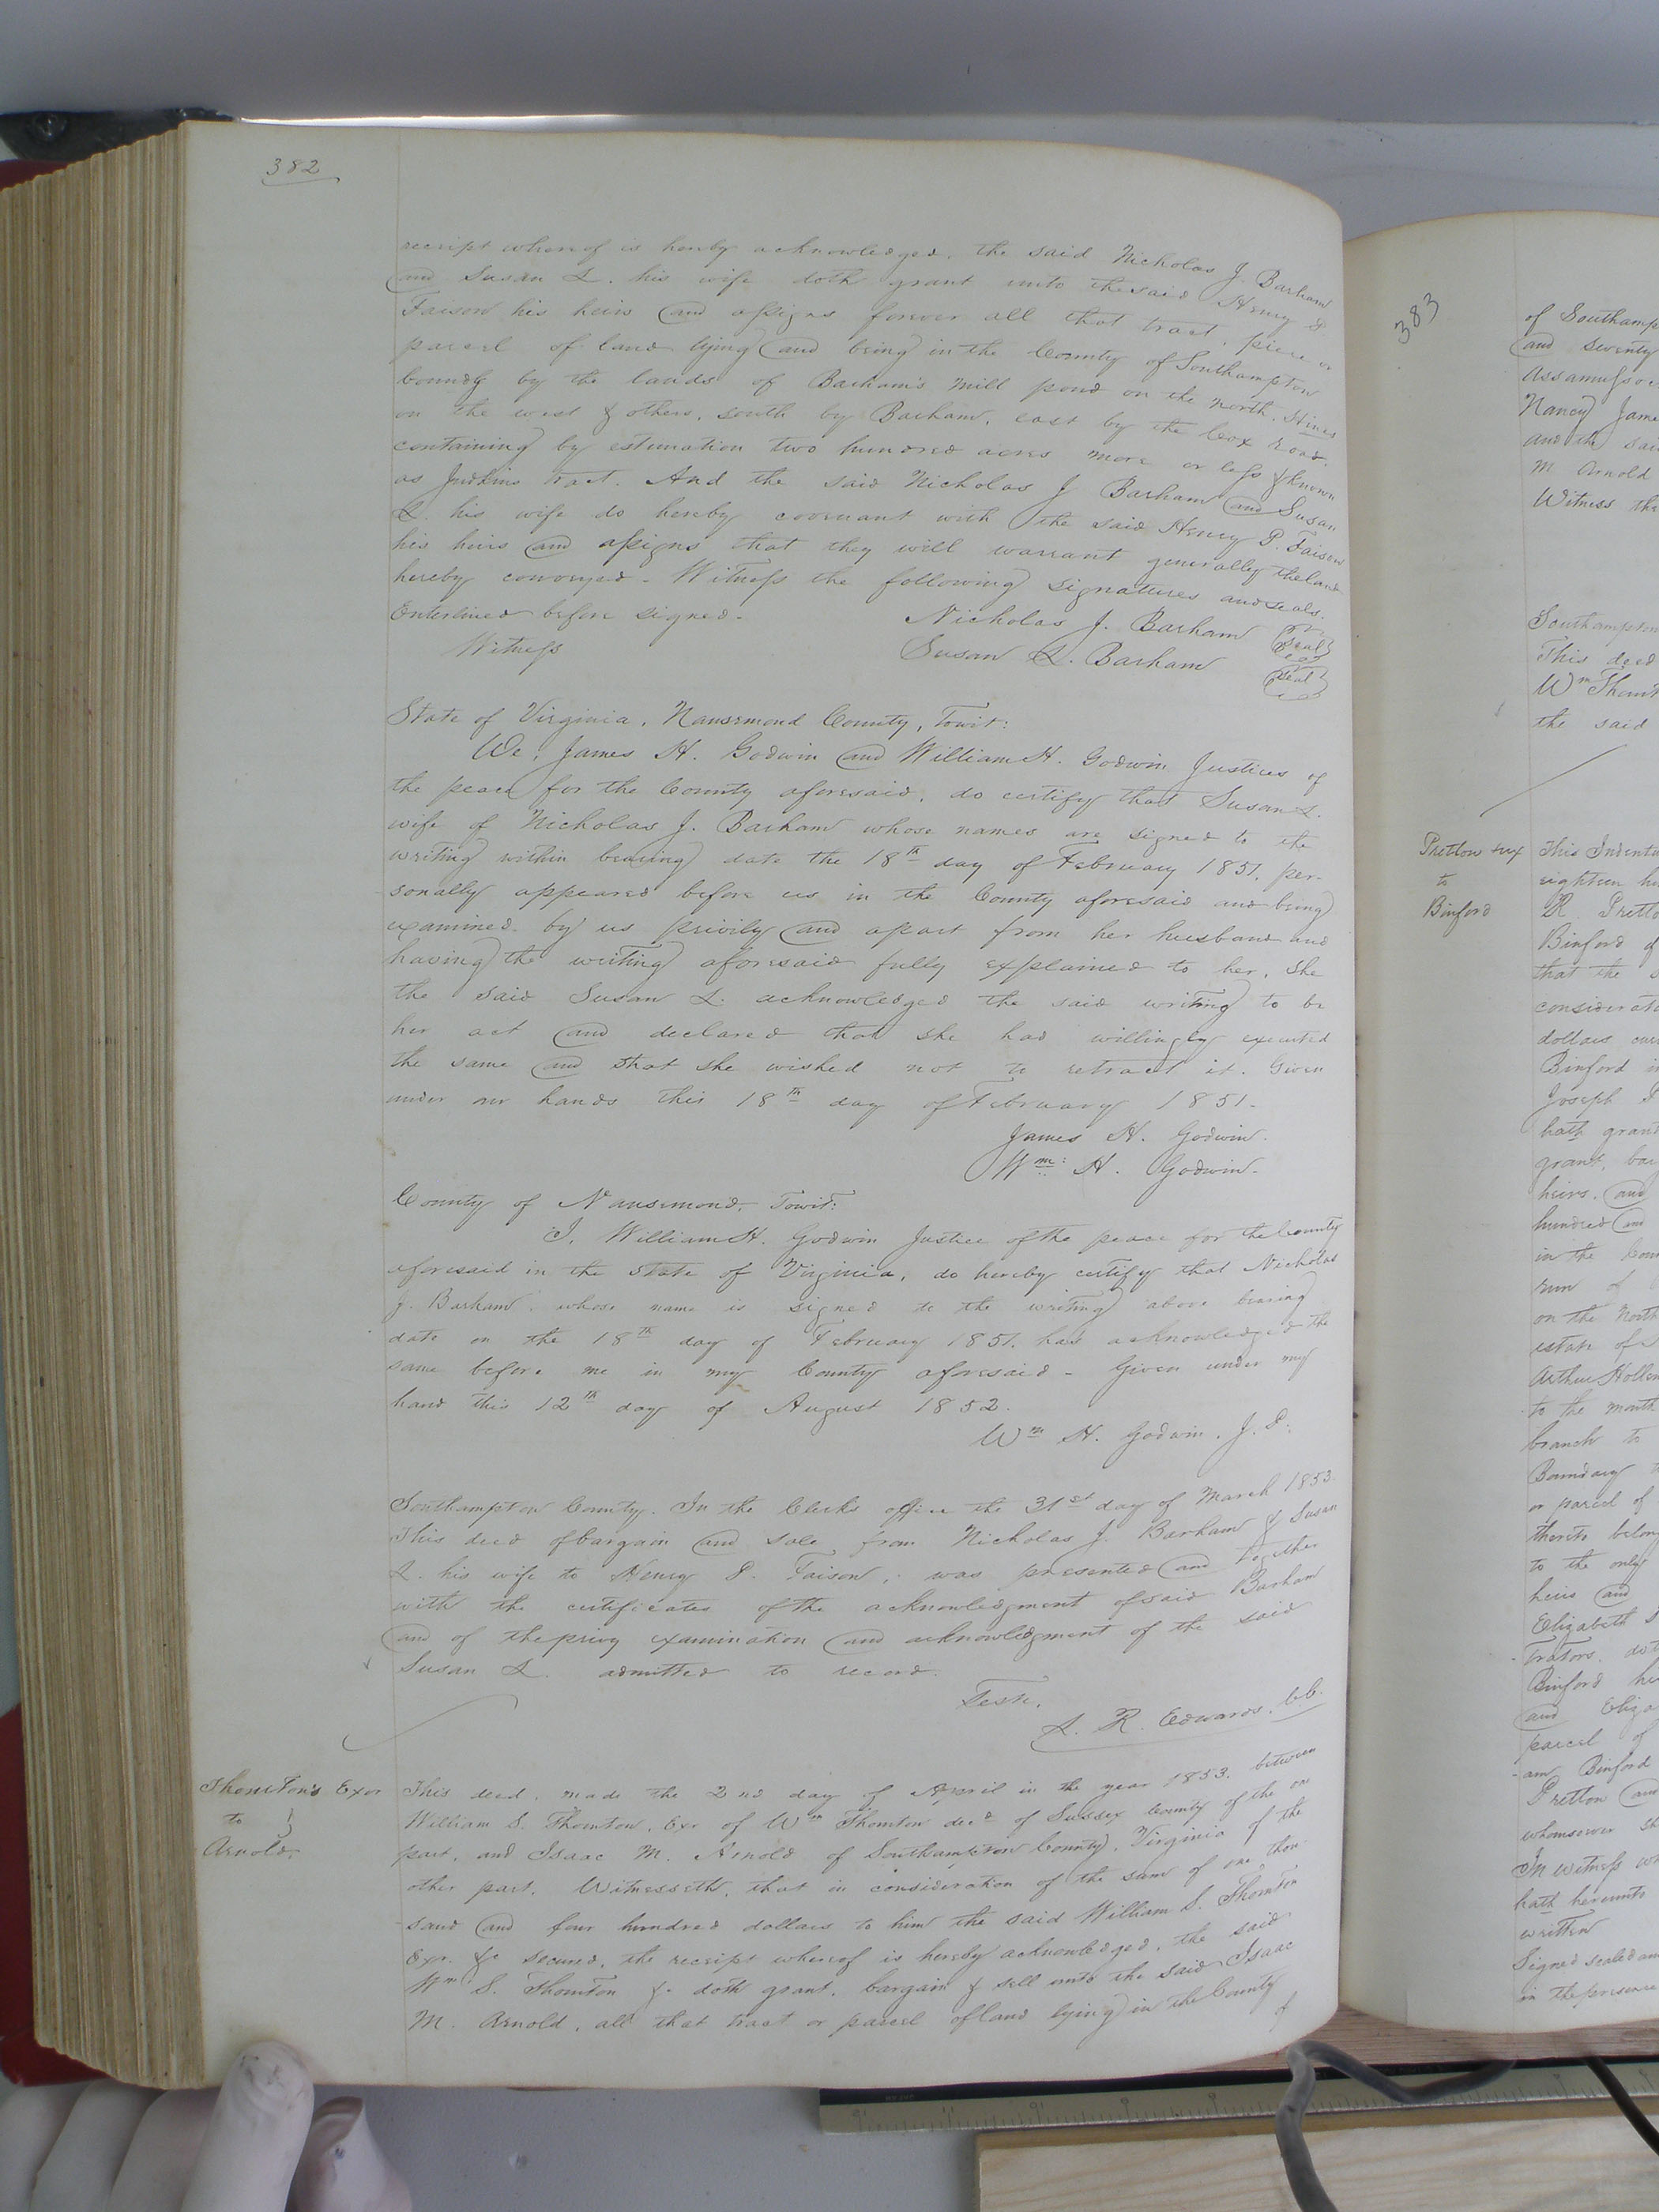 382
receipt whereof is hereby acknowledged, the said Nicholas J. Barham
and Susan L. his wife doth grant unto the said Henry P
Faison his heirs and assigns forever all that tract, piece or
parcel of land lying and being in the County of Southampton
boundg by the lands of Barham's mill pond on the north, Hines
on the west & others, south by Barham, east by the Cox road.
containing by estimation two hundred acres more or less & known
as Judkins tract. And the said Nicholas J Barham and Susan
L. his wife do hereby covenant with the said Henry P. Faison
his heirs and assigns that they will warrant generally the land
hereby conveyed - Witness the following signatures and seals.
Enterlined before signed - Nicholas J. Barham Seal
Witness Susan L. Barham Seal
State of Virginia, Nansemond County, Towit:
We, James H. Godwin and William H. Godwin Justices of
the peace for the County aforesaid, do certify that Susan L.
wife of Nicholas J. Barham whose names are signed to the
writing within bearing date the 18th day of February 1851, per-
sonally appeared before us in the County aforesaid and being
examined by us privily and apart from her husband and
having the writing aforesaid fully explained to her, She
the said Susan L. acknowledged the said writing to be
her act and declared that she had willingly executed
the same and that she wished not to retract it. Given
under our hands this 18th day of February 1851.
James H. Godwin.
Wm: H. Godwin.
County of Nansemond, Towit:
I, William H. Godwin Justice of the peace for the County
aforesaid in the State of Virginia, do hereby certify that Nicholas
J. Barham, whose name is signed to the writing above bearing
date on the 18th day of February 1851. has acknowledged the
same before me in my County aforesaid - Given under my
hand this 12th day of August 1852.
Wm H. Godwin. J. P.
Southampton County. In the Clerks office the 31st day of March 1853
This deed of bargain and sale from Nicholas J. Barham & Susan
L. his wife to Henry P. Faison, was presented and together
with the certificates of the acknowledgment of said Barham
and of the privy examination and acknowledgment of the said
Susan L. admitted to record.
Teste,
L. R. Edwards. C.C.
Thornton's Exor
to
Arnold,
This deed, made the 2nd day of April in the year 1853. between
William S. Thornton, Exr of Wm Thornton decd of Sussex County of the one
part, and Isaac M. Arnold of Southampton County, Virginia of the
other part, Witnesseth, that in consideration of the sum of one thou-
sand and four hundred dollars to him the said William S. Thornton
Exr. &c secured, the receipt whereof is hereby acknowledged, the said
Wm. S. Thornton &c doth grant, bargain & sell unto the said Isaac
M. Arnold, all that tract or parcel of land lying in the County
of
383
of Southamp
and Seventy
Assamusso
Nancy Jame
and the sai
M Arnold
Witness the
Southampton
This deed
Wm Thornt
the said
Pretlow &ux
to
Binford
This Indentu
eighteen hu
R Pretlo
Binford of
that the s
considerati
dollars cur
Binford in
Joseph P
hath grant
grant, bar
heirs, and
hundred and
in the Coun
run of
on the North
estate of
Arthur Hollem
to the mouth
branch to
Boundary
or parcel of
thereto belon
to the only
heirs and
Elizabeth
trators, do
Binford he
and Eliza
parcel of
am Binford
Pretlow and
whomsoever sh
In witness wh
hath hereunto
written
Signed sealed and
in the presence